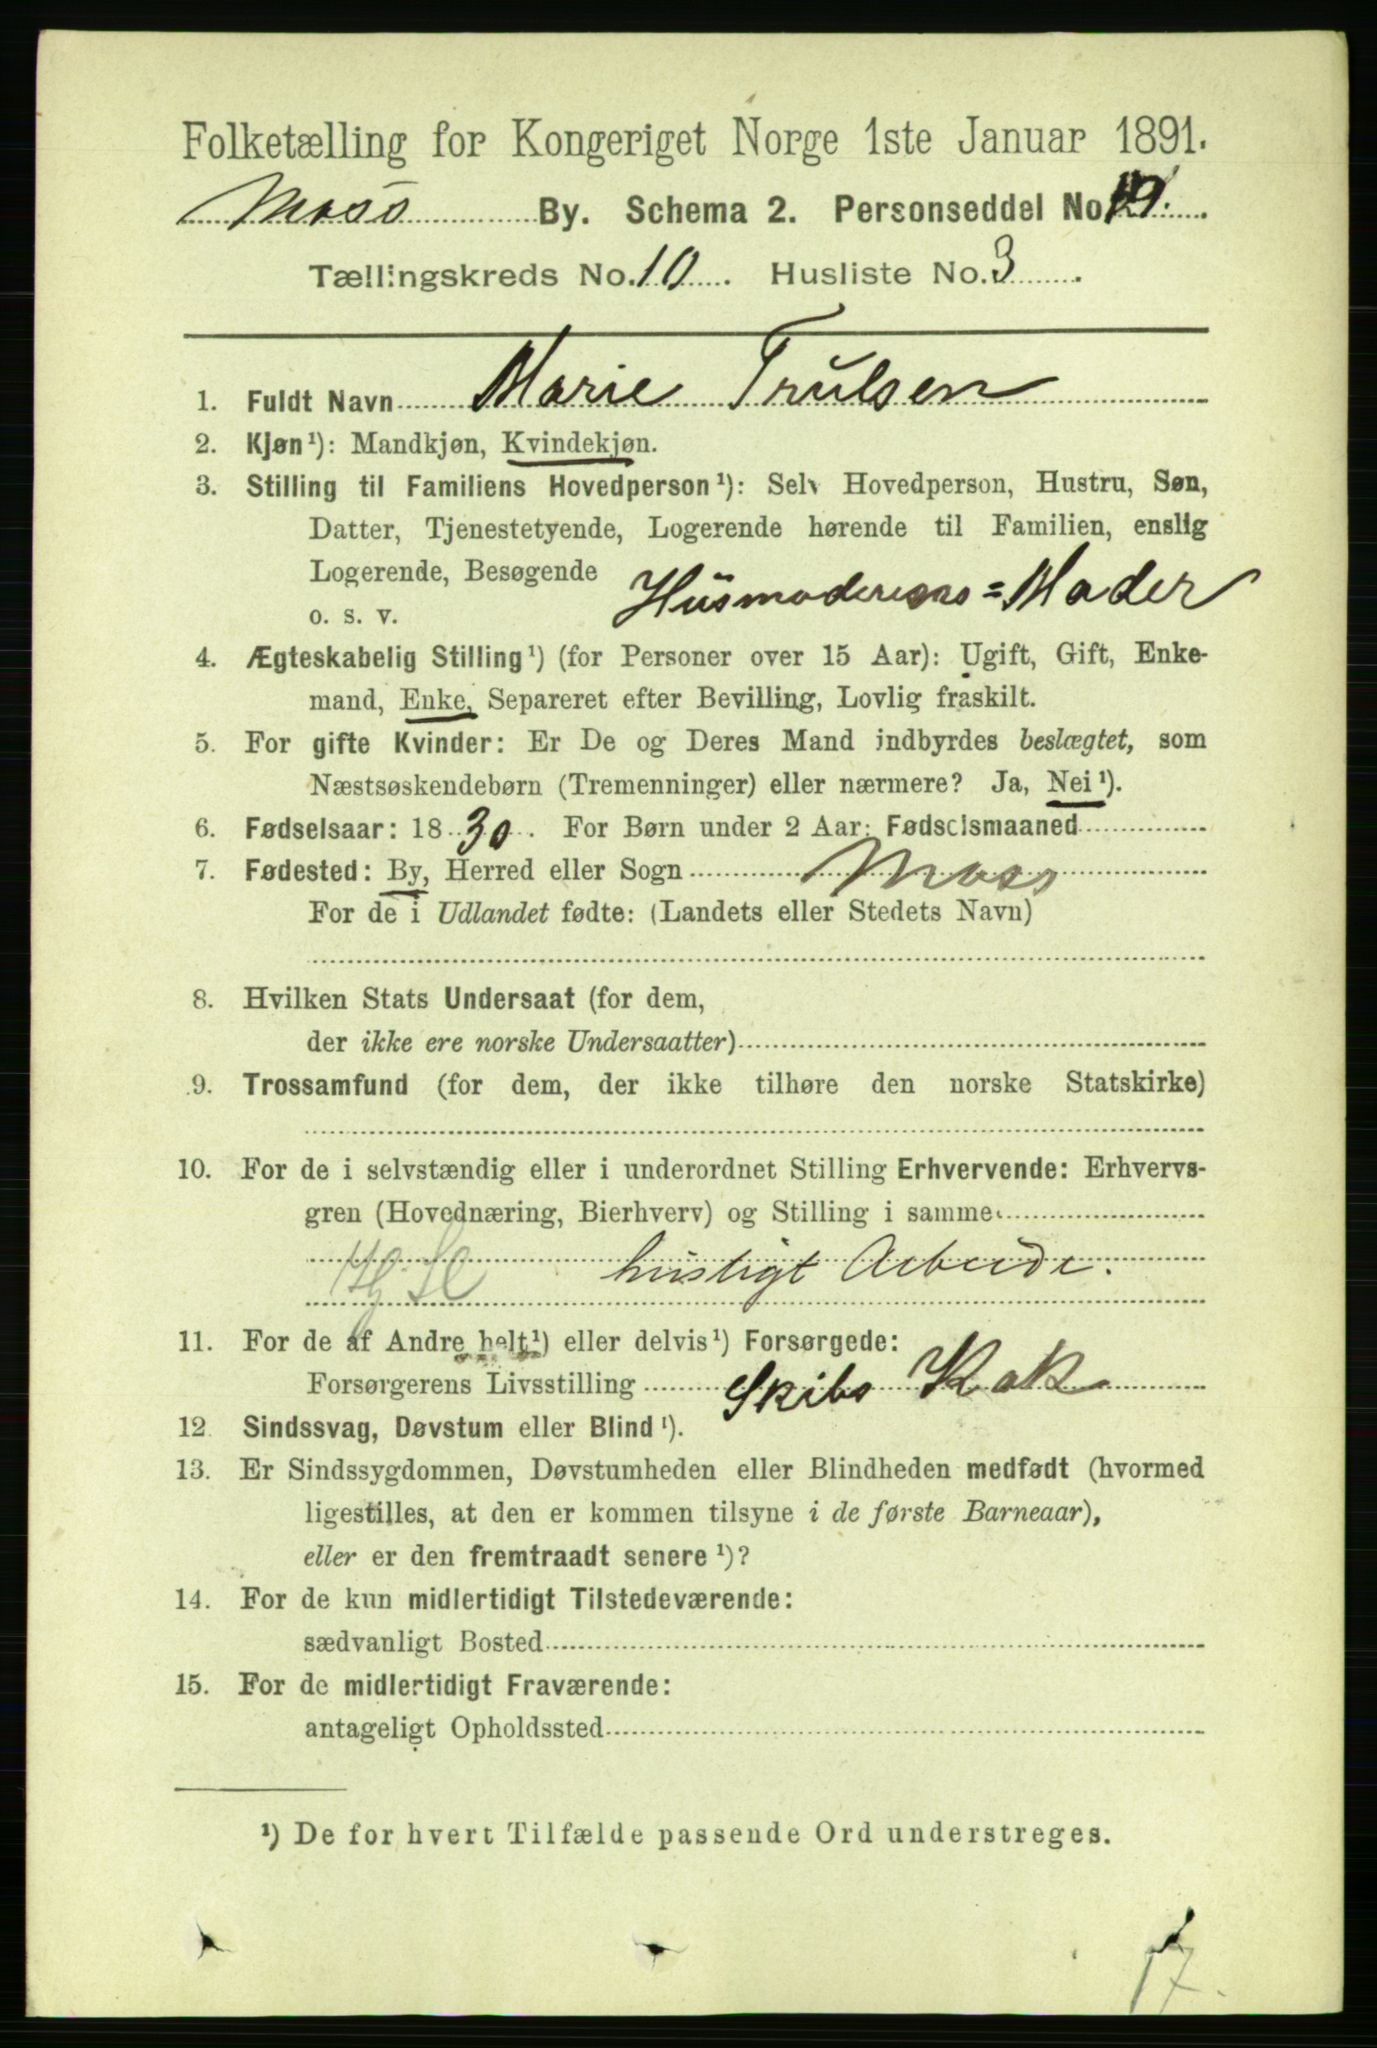 Folketælling for Kongeriget Norge 1ste Januar 1891.
Moss By. Schema 2. Personseddel No.
Tællingskreds No. 10. Husliste No. 3.
1. Fuldt Navn Marie Trulsen
2. Kjøn¹): Mandkjøn, Kvindekjøn.
3. Stilling til Familiens Hovedperson¹): Selv Hovedperson, Hustru, Søn,
Datter, Tjenestetyende, Logerende hørende til Familien, enslig
Logerende, Besøgende
o. s. v. Husmoderens = Moder
4. Ægteskabelig Stilling¹) (for Personer over 15 Aar): Ugift, Gift, Enke-
mand, Enke, Separeret efter Bevilling, Lovlig fraskilt.
5. For gifte Kvinder: Er De og Deres Mand indbyrdes beslægtet, som
Næstsøskendebørn (Tremenninger) eller nærmere? Ja, Nei¹).
6. Fødselsaar: 1830. For Børn under 2 Aar: Fødselsmaaned
7. Fødested: By, Herred eller Sogn Moss
For de i Udlandet fødte: (Landets eller Stedets Navn)
8. Hvilken Stats Undersaat (for dem,
der ikke ere norske Undersaatter)
9. Trossamfund (for dem, der ikke tilhøre den norske Statskirke)
10. For de i selvstændig eller i underordnet Stilling Erhvervende: Erhvervs-
gren (Hovednæring, Bierhverv) og Stilling i samme
husligt Arbeide.
11. For de af Andre helt¹) eller delvis¹) Forsørgede:
Forsørgerens Livsstilling Skibs Kok
12. Sindssvag, Døvstum eller Blind¹).
13. Er Sindssygdommen, Døvstumheden eller Blindheden medfødt (hvormed
ligestilles, at den er kommen tilsyne i de første Barneaar),
eller er den fremtraadt senere¹)?
14. For de kun midlertidigt Tilstedeværende:
sædvanligt Bosted
15. For de midlertidigt Fraværende:
antageligt Opholdssted
¹) De for hvert Tilfælde passende Ord understreges.
17.